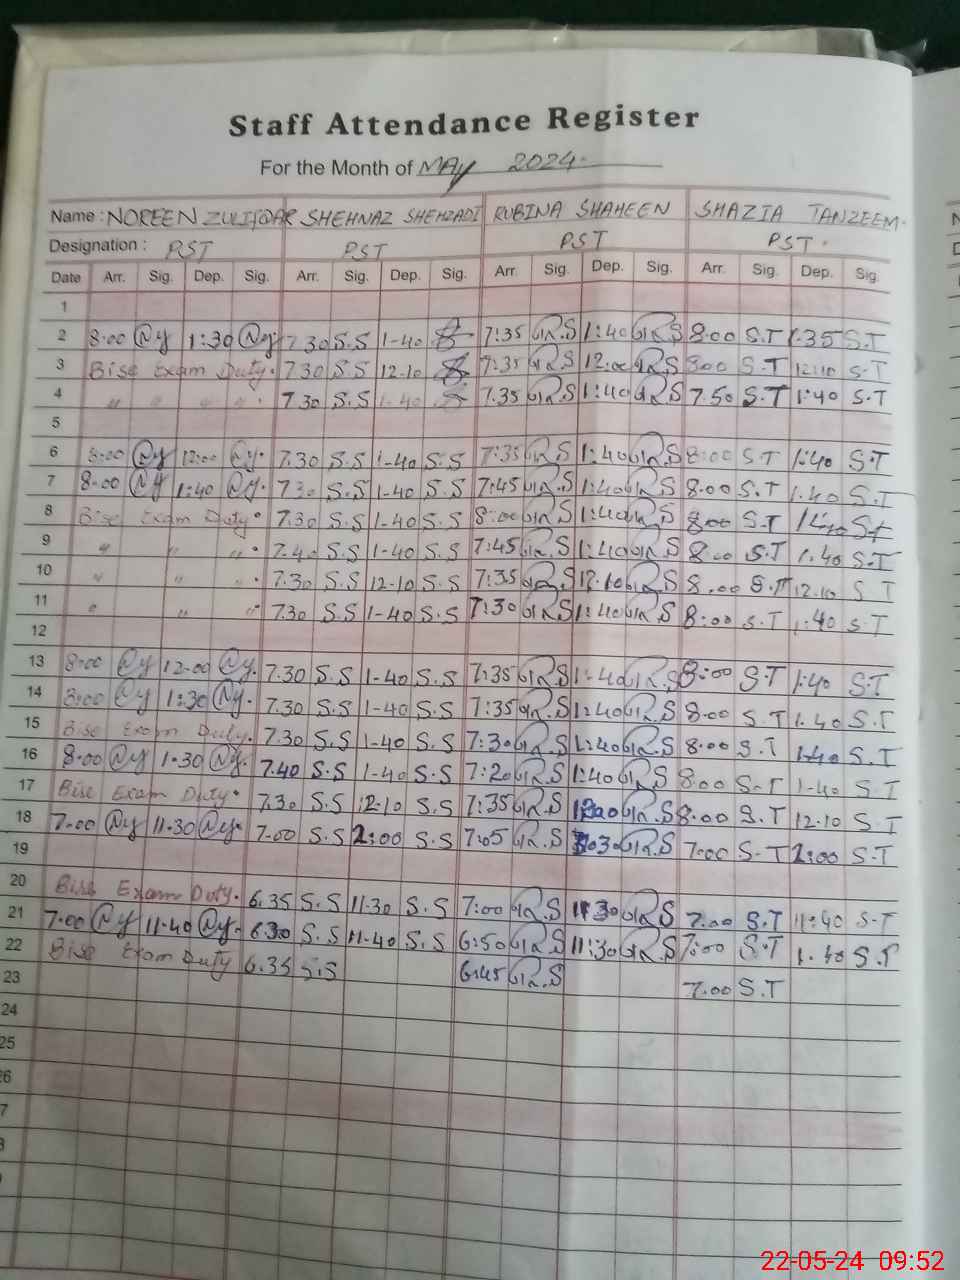 Staff Attendance Register
For the Month of MAY 2024
Name : NOREEN ZULIFQAR SHEHNAZ SHEHZADI RUBINA SHAHEEN SHAZIA TANZEEM.
Designation : PST PST PST PST.
Date Arr. Sig. Dep. Sig. Arr. Sig. Dep. Sig. Arr. Sig. Dep. Sig. Arr. Sig. Dep. Sig.
1
2 8.00 1:30 7 30 S.S 1-40 7:35 R.S 1:40 R.S 8.00 S.T 1.35 S.T
3 Bise Exam Duty. 7 30 S.S 12-10 7:35 R.S 12.00 R.S 8.00 S.T 12:10 S.T
4 " " " " 7 30 S.S 1-40 7.35 R.S 1:40 R.S 7.50 S.T 1:40 S.T
5
6 8:00 12:00 7.30 S.S 1-40 S.S 7:35 R.S 1:40 R.S 8:00 S.T 1:40 S.T
7 8-00 1:40 7 30 S.S 1-40 S.S 7:45 R.S 1:40 R.S 8.00 S.T 1.40 S.T
8 Bise Exam Duty. 7.30 S.S 1-40 S.S 8:00 R.S 1:40 R.S 8:00 S.T S.T
9 " " " 7.40 S.S 1-40 S.S 7:45 R.S 1:40 R.S 8.00 S.T 1.40 S.T
10 " " " 7.30 S.S 12-10 S.S 7:35 R.S 12.10 R.S 8.00 S.T 12.10 S T
11 " " " 7.30 S.S 1-40 S.S 7:30 R.S 1:40 R.S 8:00 S.T 1:40 S.T
12
13 8:00 12-00 7.30 S.S 1-40 S.S 7:35 R.S 1:40 R.S 8:00 S.T 1:40 S.T
14 8:00 1:30 7.30 S.S 1-40 S.S 7:35 R.S 1:40 R.S 8.00 S.T 1.40 S.T
15 Bise Exam Duty. 7.30 S.S 1-40 S.S 7:30 R.S 1:40 R.S 8.00 S.T 1.40 S.T
16 8.00 1.30 7.40 S.S 1-40 S.S 7:20 R.S 1:40 R.S 8.00 S.T 1-40 S.T
17 Bise Exam Duty. 7.30 S.S 12-10 S.S 7:35 R.S R.S 8.00 S.T 12.10 S.T
18 7-00 11-30 7.00 S.S S.S 7:05 R.S R.S 7:00 S.T S.T
19
20 Bise Exam Duty. 6.35 S.S 11-30 S.S 7:00 R.S 11 30 R.S 7.00 S.T 11:40 S.T
21 7.00 11-40 6.30 S.S 11-40 S.S 6:50 R.S 11:30 R.S 7:00 S.T 1.40 S.T
22 Bise Exam Duty 6.35 S.S 6:45 R.S 7.00 S.T
23
24
25
26
7
8
22-05-24 09:52